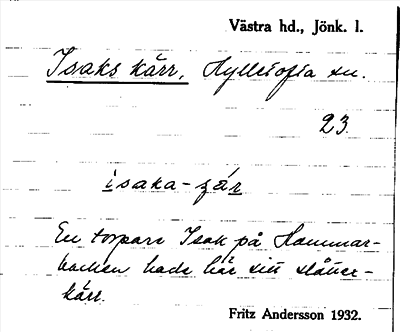 Västra hd., Jönk. l.
Isaks kärr, Hylletofta sn.
23.
isaka-
En torpare Isak på Hammar-
backen hade här sin slåtter-
kärr.
Fritz Andersson 1932.